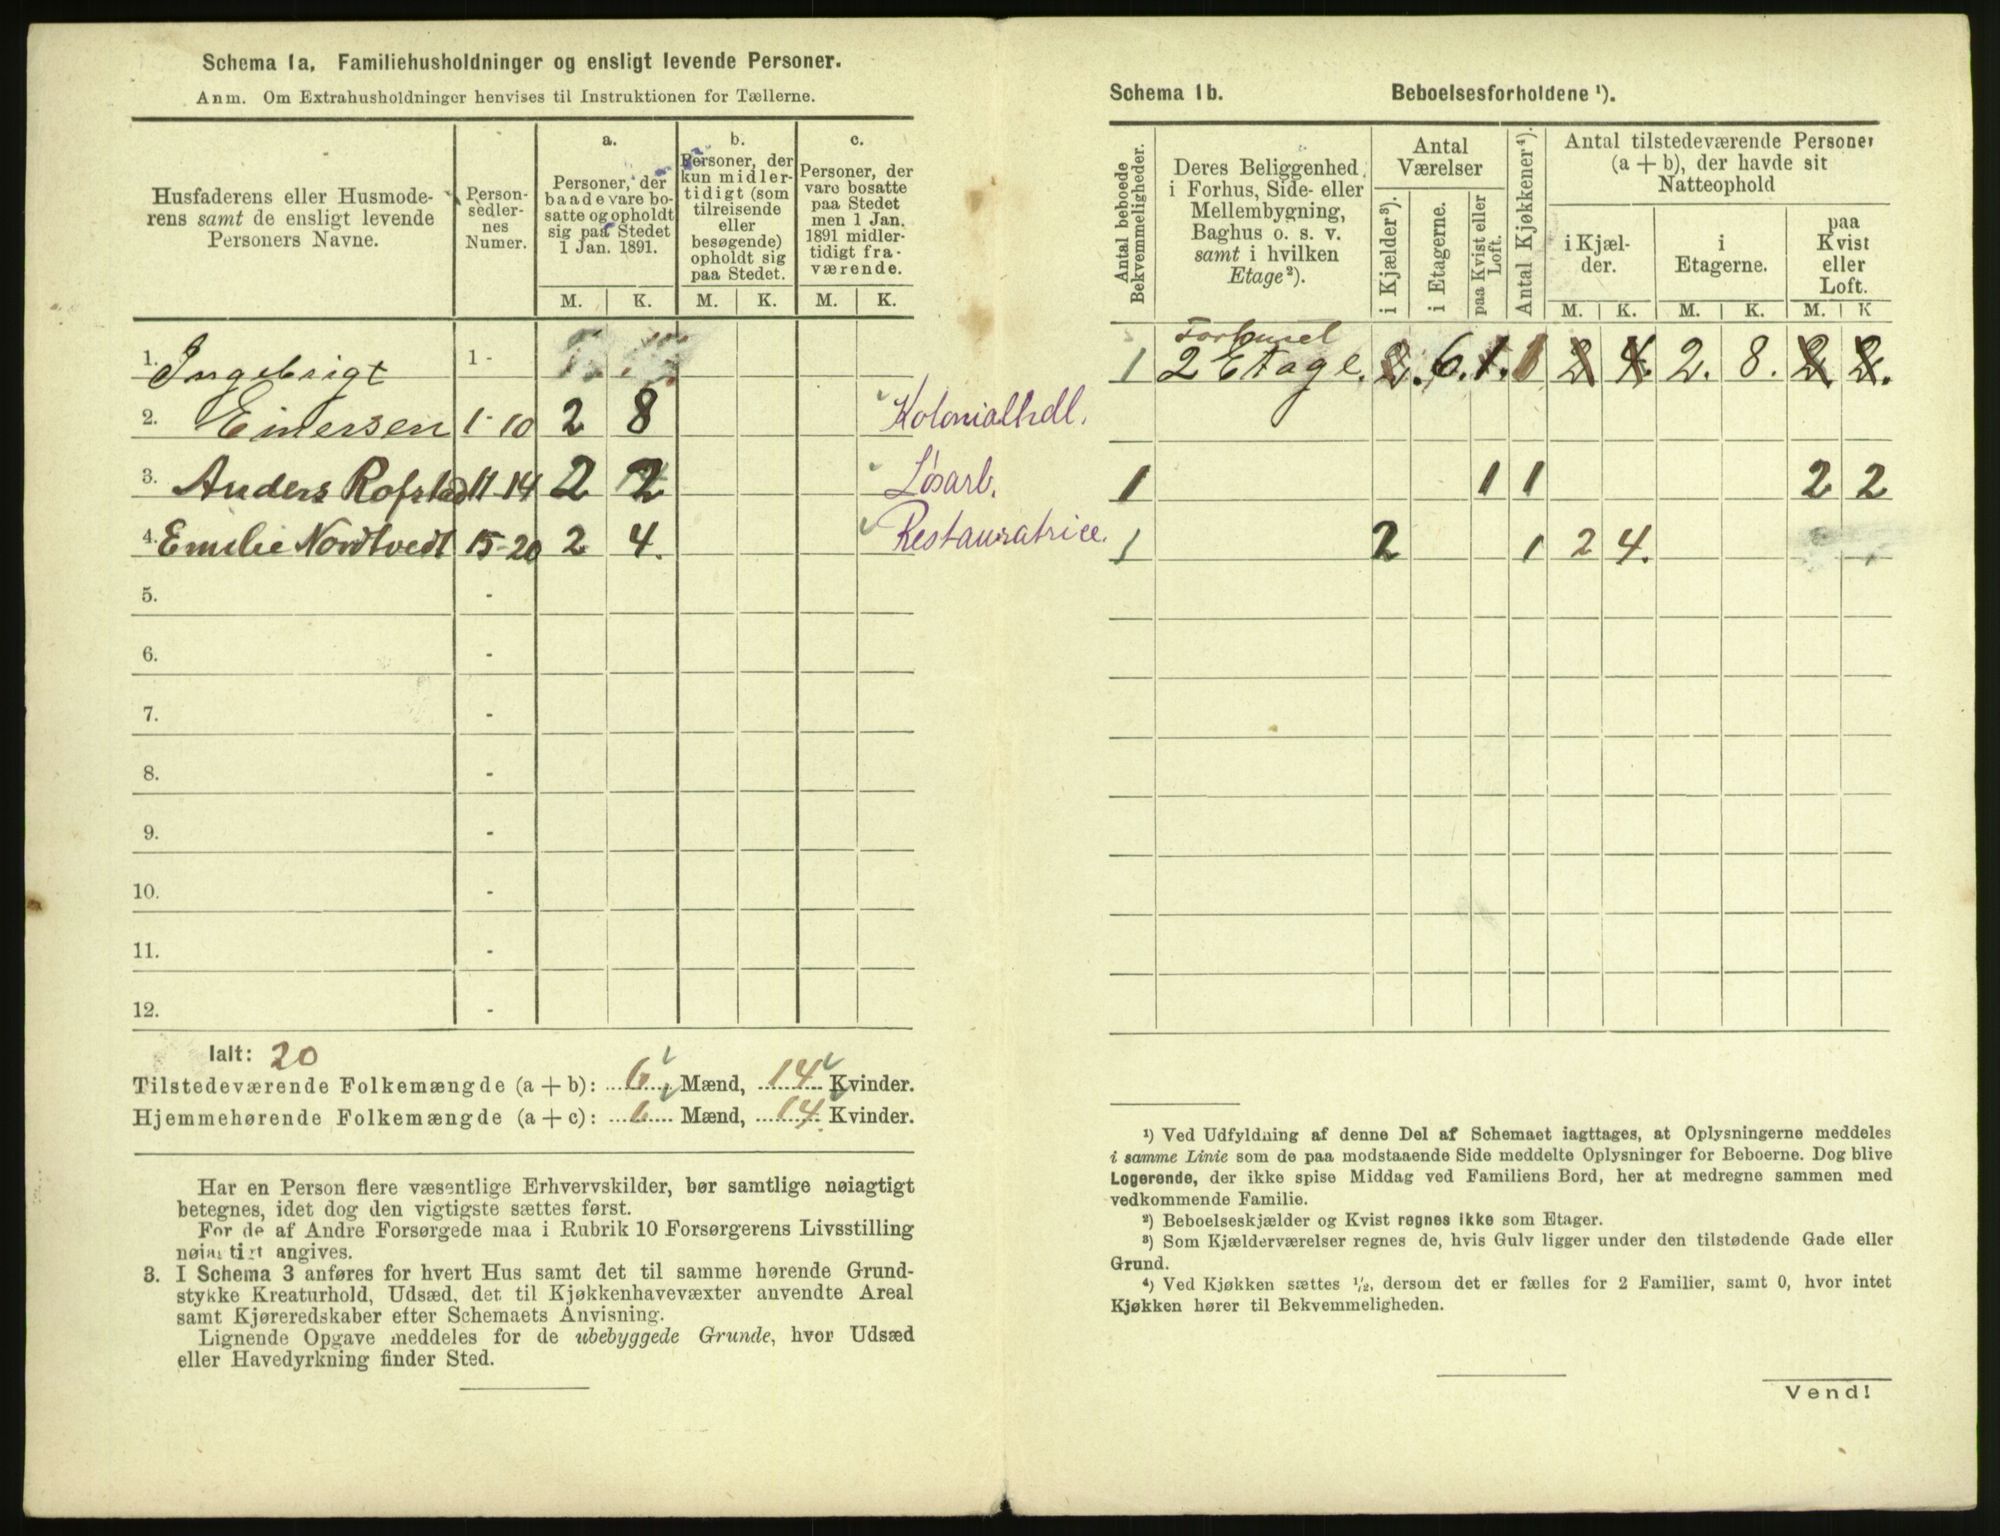 Schema 1a. Familiehusholdninger og ensligt levende Personer.
Anm. Om Extrahusholdninger henvises til Instruktionen for Tællerne.
Husfaderens eller Husmoderens samt de ensligt levende Personers Navne.
Personsedlernes Numer.
a.
Personer, der baade vare bosatte og opholdt sig paa Stedet 1 Jan. 1891.
b.
Personer, der kun midlertidigt (som tilreisende eller besøgende) opholdt sig paa Stedet.
c.
Personer, der vare bosatte paa Stedet men 1 Jan. 1891 midlertidigt fraværende.
M. K. M. K. M. K.
1. Ingebrigt 1 -
2. Einersen 1 - 10 2 8 Kolonialhdl.
3. Anders Rofstad 11 - 14 2 2 Løsarb.
4. Emilie Nordtvedt 15 - 20 2 4. Restauratrice.
5. -
6. -
7. -
8. -
9. -
10. -
11. -
12. -
Ialt: 20
Tilstedeværende Folkemængde (a + b): 6 Mænd, 14 Kvinder.
Hjemmehørende Folkemængde (a + c): 6 Mænd, 14 Kvinder.
Har en Person flere væsentlige Erhvervskilder, bør samtlige nøiagtigt
betegnes, idet dog den vigtigste sættes først.
For de af Andre Forsørgede maa i Rubrik 10 Forsørgerens Livsstilling
nøiagtigt angives.
3. I Schema 3 anføres for hvert Hus samt det til samme hørende Grund-
stykke Kreaturhold, Udsæd, det til Kjøkkenhavevæxter anvendte Areal
samt Kjøreredskaber efter Schemaets Anvisning.
Lignende Opgave meddeles for de ubebyggede Grunde, hvor Udsæd
eller Havedyrkning finder Sted.
Schema 1b. Beboelsesforholdene ¹).
Antal beboede Bekvemmeligheder.
Deres Beliggenhed i Forhus, Side- eller Mellembygning, Baghus o. s. v. samt i hvilken Etage²).
Antal Værelser
i Kjælder³).
i Etagerne.
paa Kvist eller Loft.
Antal Kjøkkener⁴).
Antal tilstedeværende Personer (a + b), der havde sit Natteophold
i Kjælder.
i Etagerne.
paa Kvist eller Loft.
M. K. M. K. M. K
Forhuset
1 2 Etage. 2. 6. 1. 1 2 4. 2. 8. 2. 2.
1 1 1 2 2
1 2 1 2 4.
¹) Ved Udfyldning af denne Del af Schemaet iagttages, at Oplysningerne meddeles
i samme Linie som de paa modstaaende Side meddelte Oplysninger for Beboerne. Dog blive
Logerende, der ikke spise Middag ved Familiens Bord, her at medregne sammen med
vedkommende Familie.
²) Beboelseskjælder og Kvist regnes ikke som Etager.
³) Som Kjælderværelser regnes de, hvis Gulv ligger under den tilstødende Gade eller
Grund.
⁴) Ved Kjøkken sættes ½, dersom det er fælles for 2 Familier, samt 0, hvor intet
Kjøkken hører til Bekvemmeligheden.
Vend!